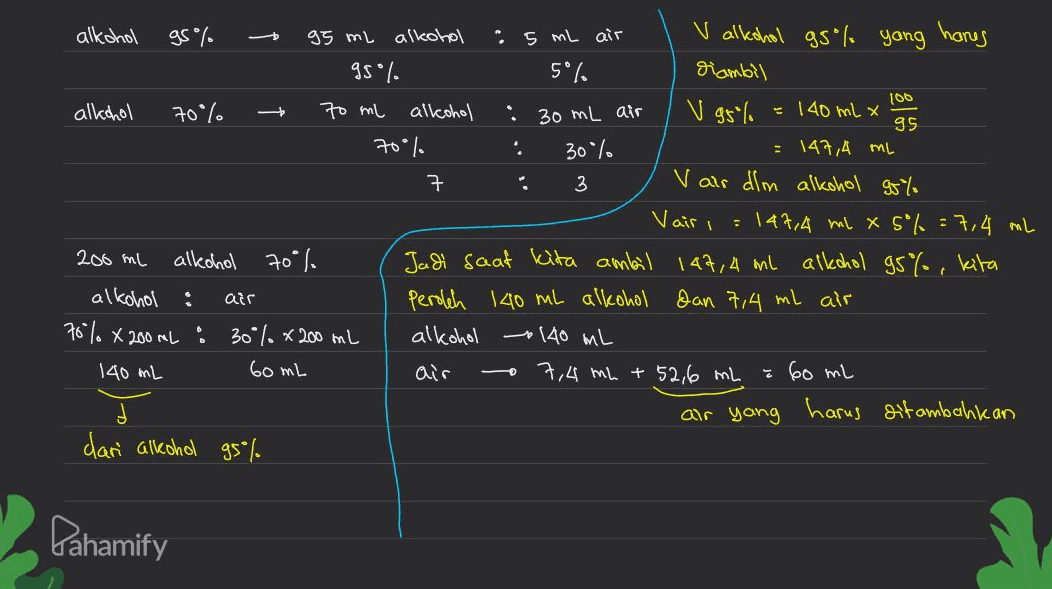 alkohol 95% → 95 mL alkohol : 5 mL air
95% 5%
alkohol 70% → 70 mL alkohol : 30 mL air
70% : 30%
7 : 3
200 mL alkohol 70%
alkohol : air
70% x 200 mL : 30% x 200 mL
140 mL 60 mL
dari alkohol 95%
V alkohol 95% yang harus
diambil
V 95% = 140 mL x 100/95
= 147,4 mL
V air dlm alkohol 95%
V air 1 = 147,4 mL x 5% = 7,4 mL
Jadi saat kita ambil 147,4 mL alkohol 95%, kita
peroleh 140 mL alkohol dan 7,4 mL air
alkohol → 140 mL
air → 7,4 mL + 52,6 mL = 60 mL
air yang harus ditambahkan
Pahamify